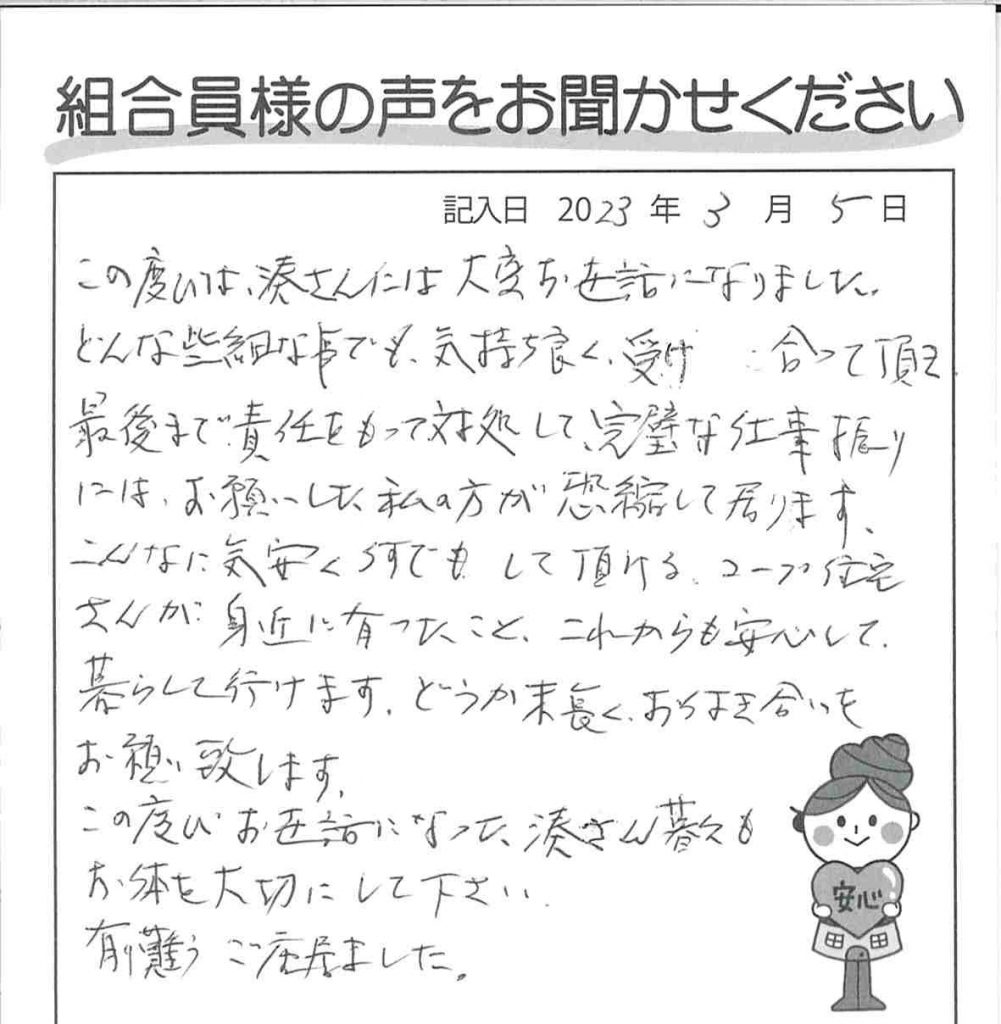 組合員様の声をお聞かせください
記入日 2023年 3月 5日
この度びは、湊さんには大変お世話になりました。
どんな些細な事でも、気持ち良く、受け 合って頂き
最後まで責任をもって対処して、完璧な仕事振り
には、お願いした私の方が恐縮して居ります。
こんなに気安く何でも して頂ける、コープ住宅
さんが身近に有ったこと、これからも安心して、
暮らして行けます。どうか末長く、おつき合いを
お願い致します。
この度びお世話になった、湊さん暮々も
お体を大切にして下さい。
有難うご座居ました。
安心